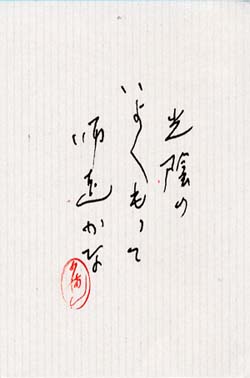 光陰の
いよゝもつて
師走かな